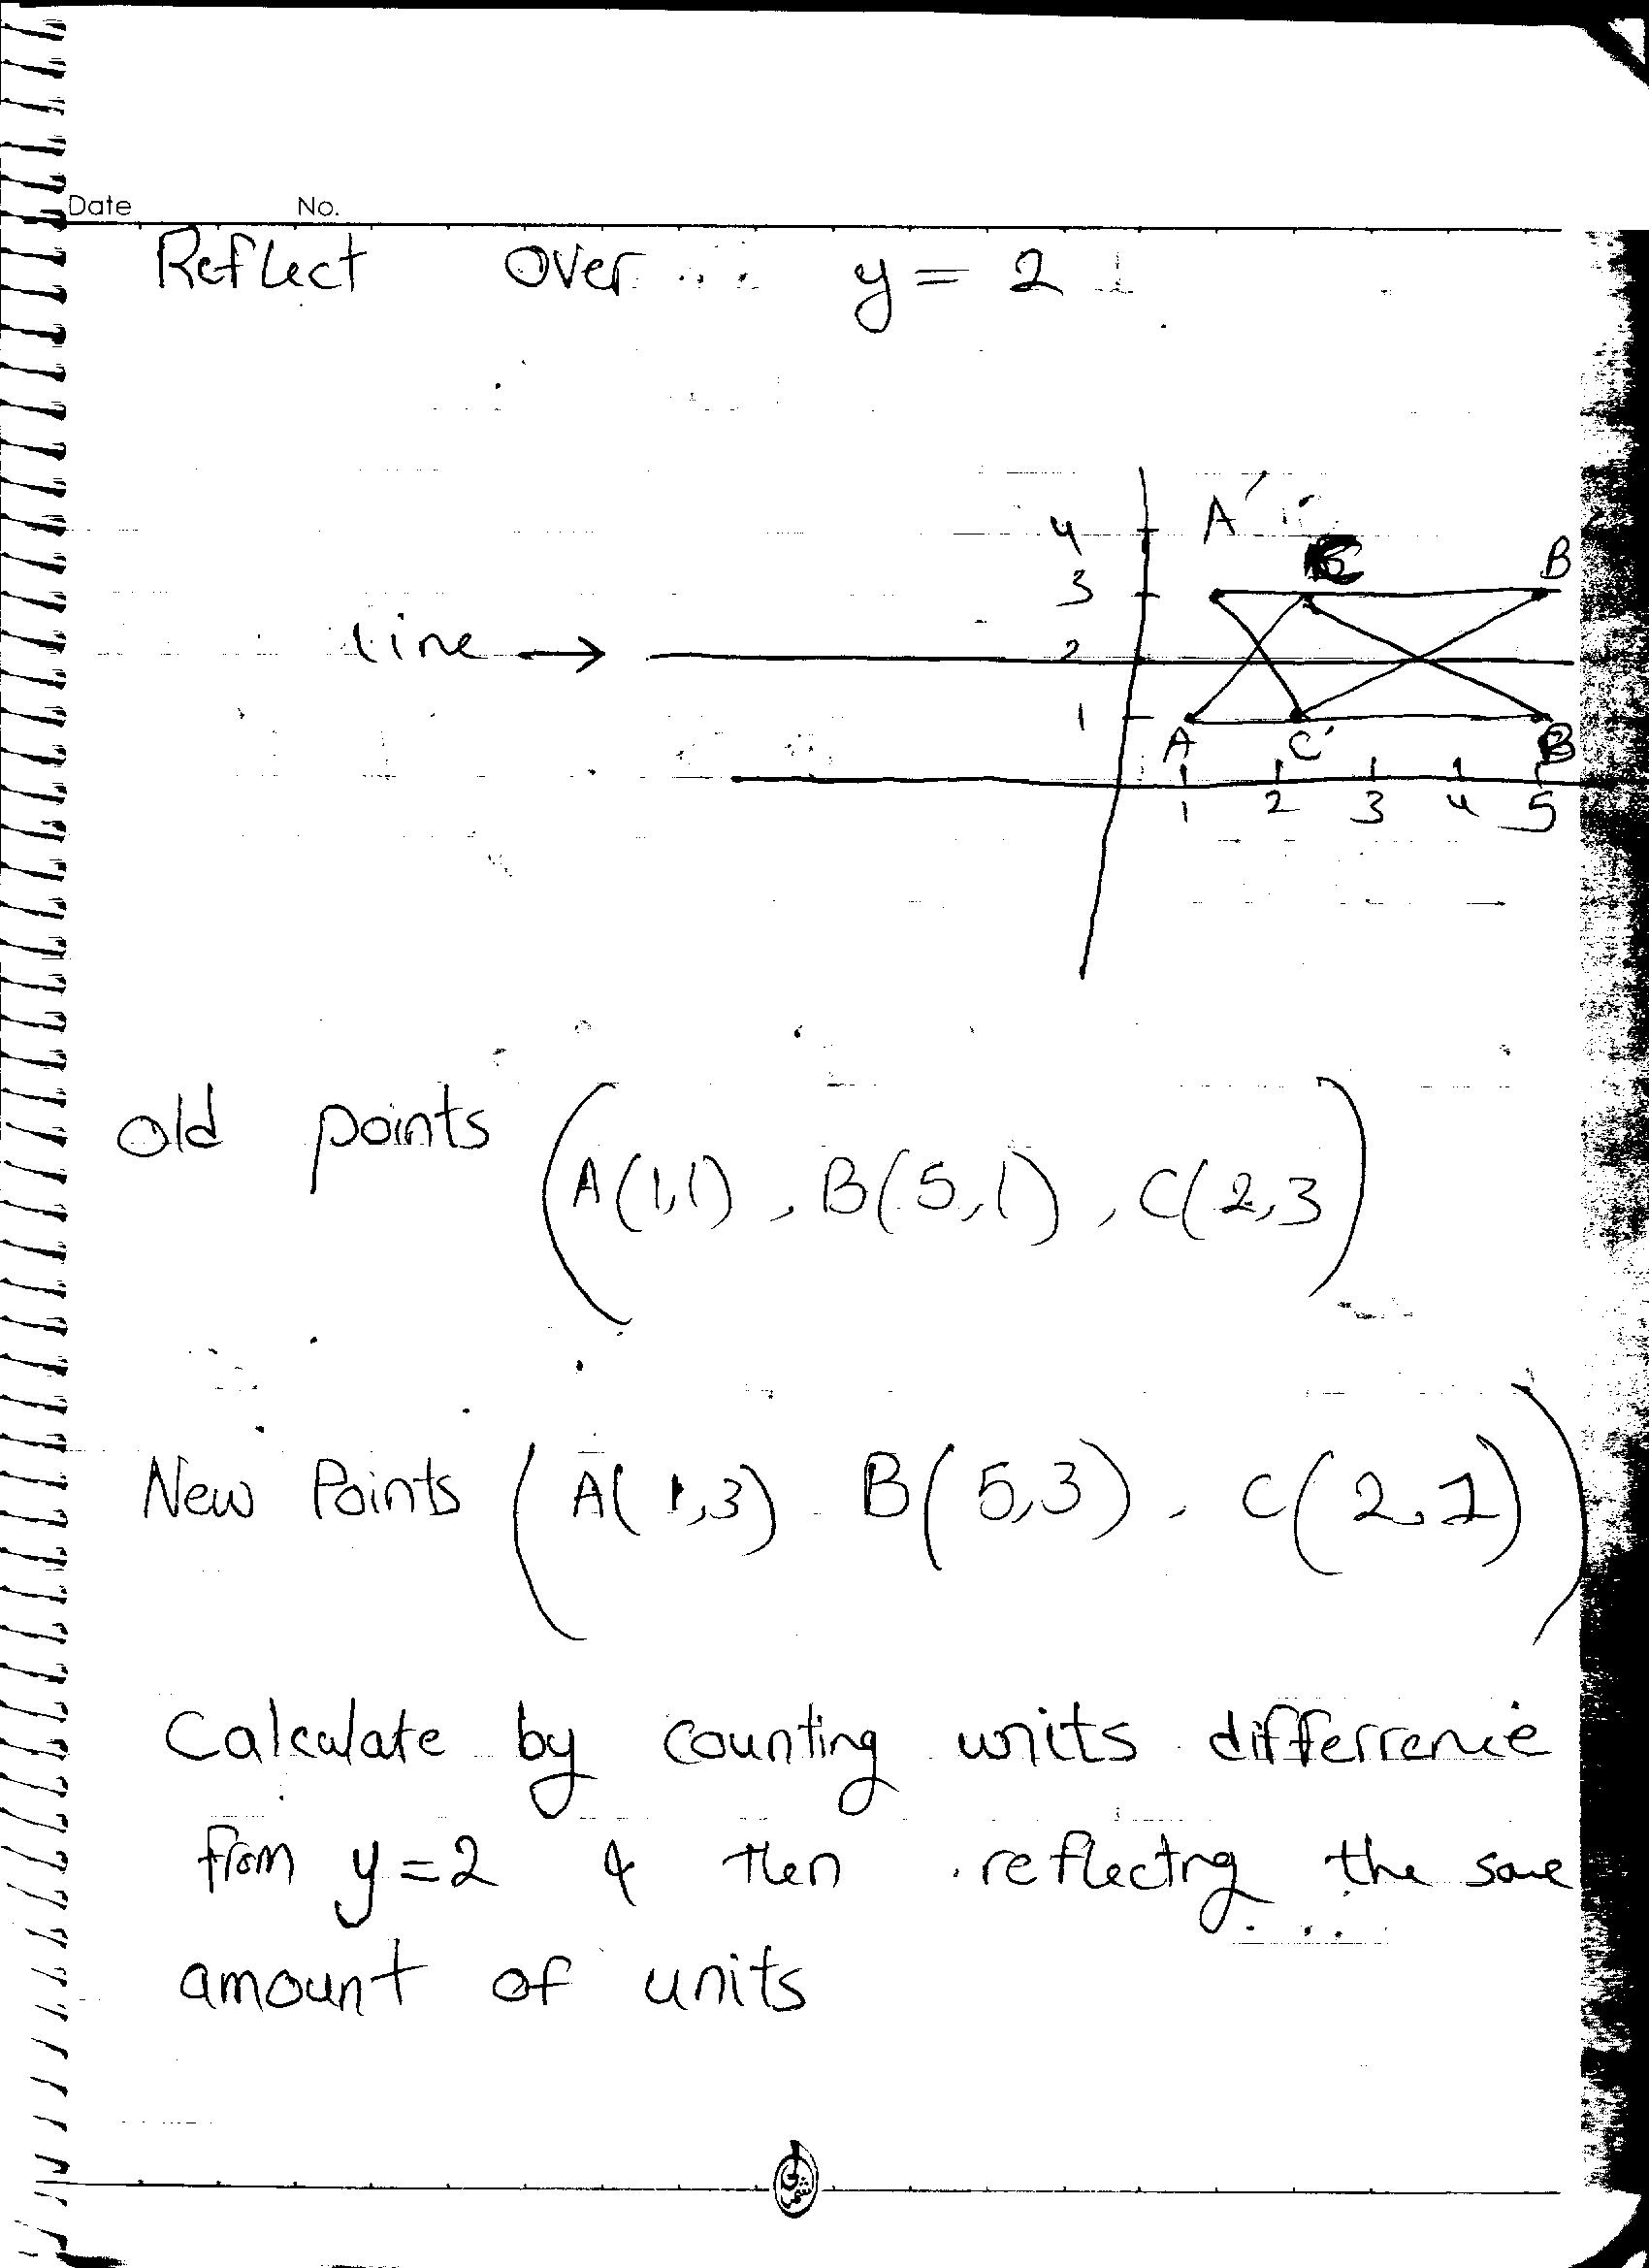 Date No.
Reflect over ... y = 2
4 A'
C B
3
line → 2
1
A C' B
1 2 3 4 5
old points (A(1,1), B(5,1), C(2,3)
New Points (A(1,3) B(5,3), C(2,1))
Calculate by counting units differrence
from y=2 & then reflecting the same
amount of units